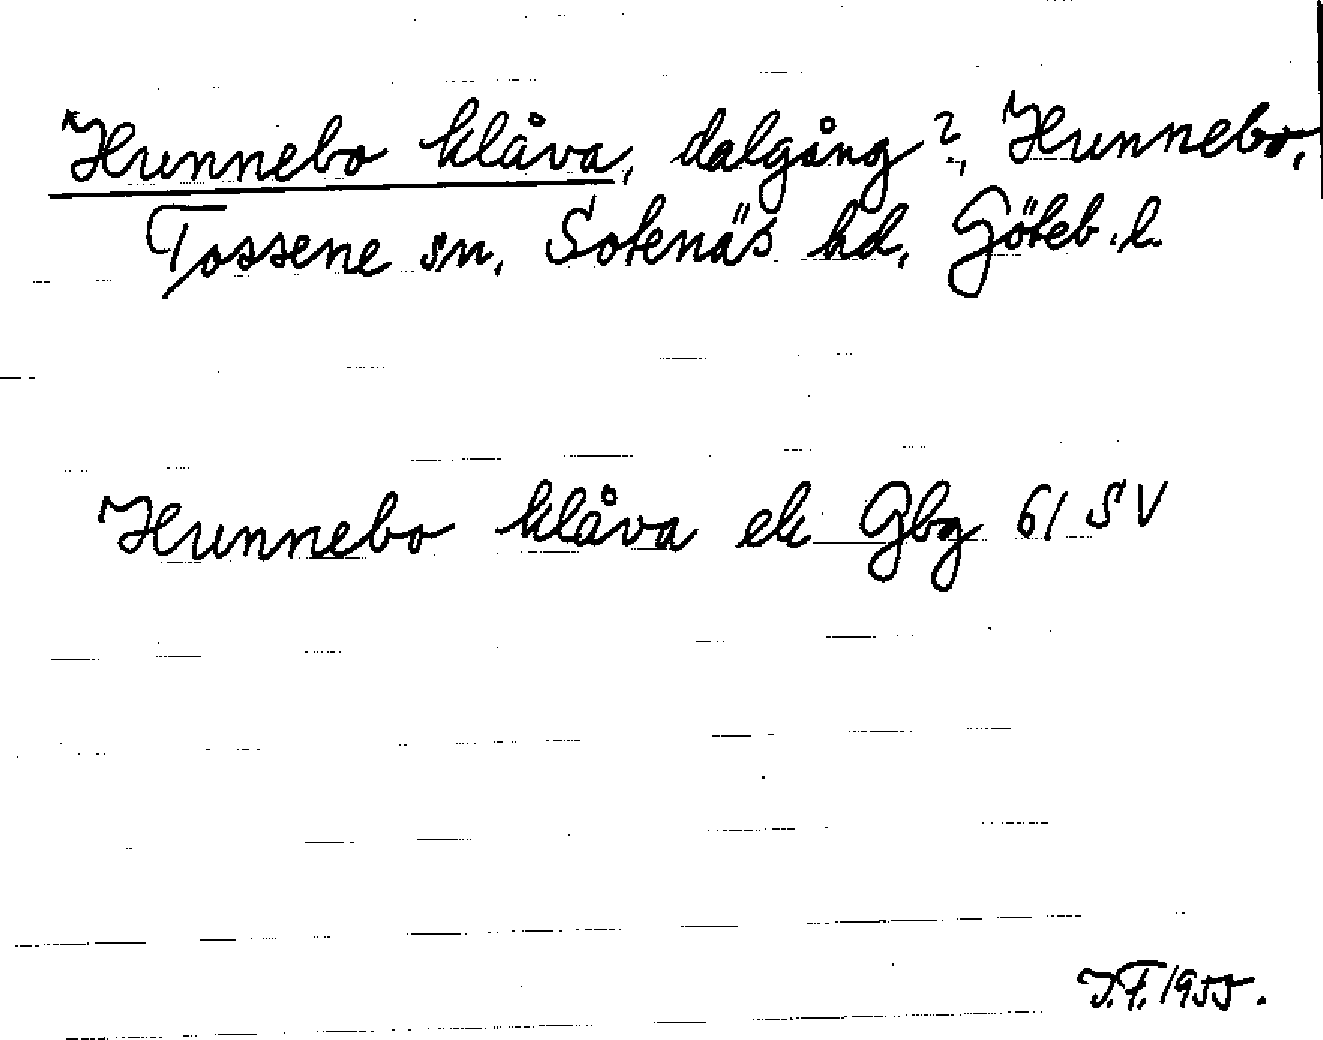 Hunnebo klåva, dalgång?, Hunnebo,
Tossene sn, Sotenäs hd, Göteb. l.
Hunnebo klåva ek Gbg 61 SV
J.F. 1955.